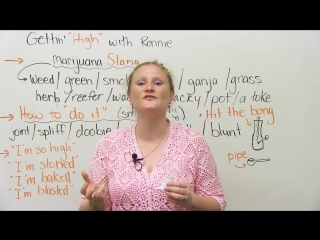 Gettin' "High" with Ronnie
marijuana Slang
Weed/green/smo /ganja/grass
herb/reefer/wa acky/pot/a toke
"How to do it" (sm Hit the bong
joint/spliff/doobie / blunt
"I'm so high" pipe
"I'm stoned"
"I'm baked"
"I'm blasted"